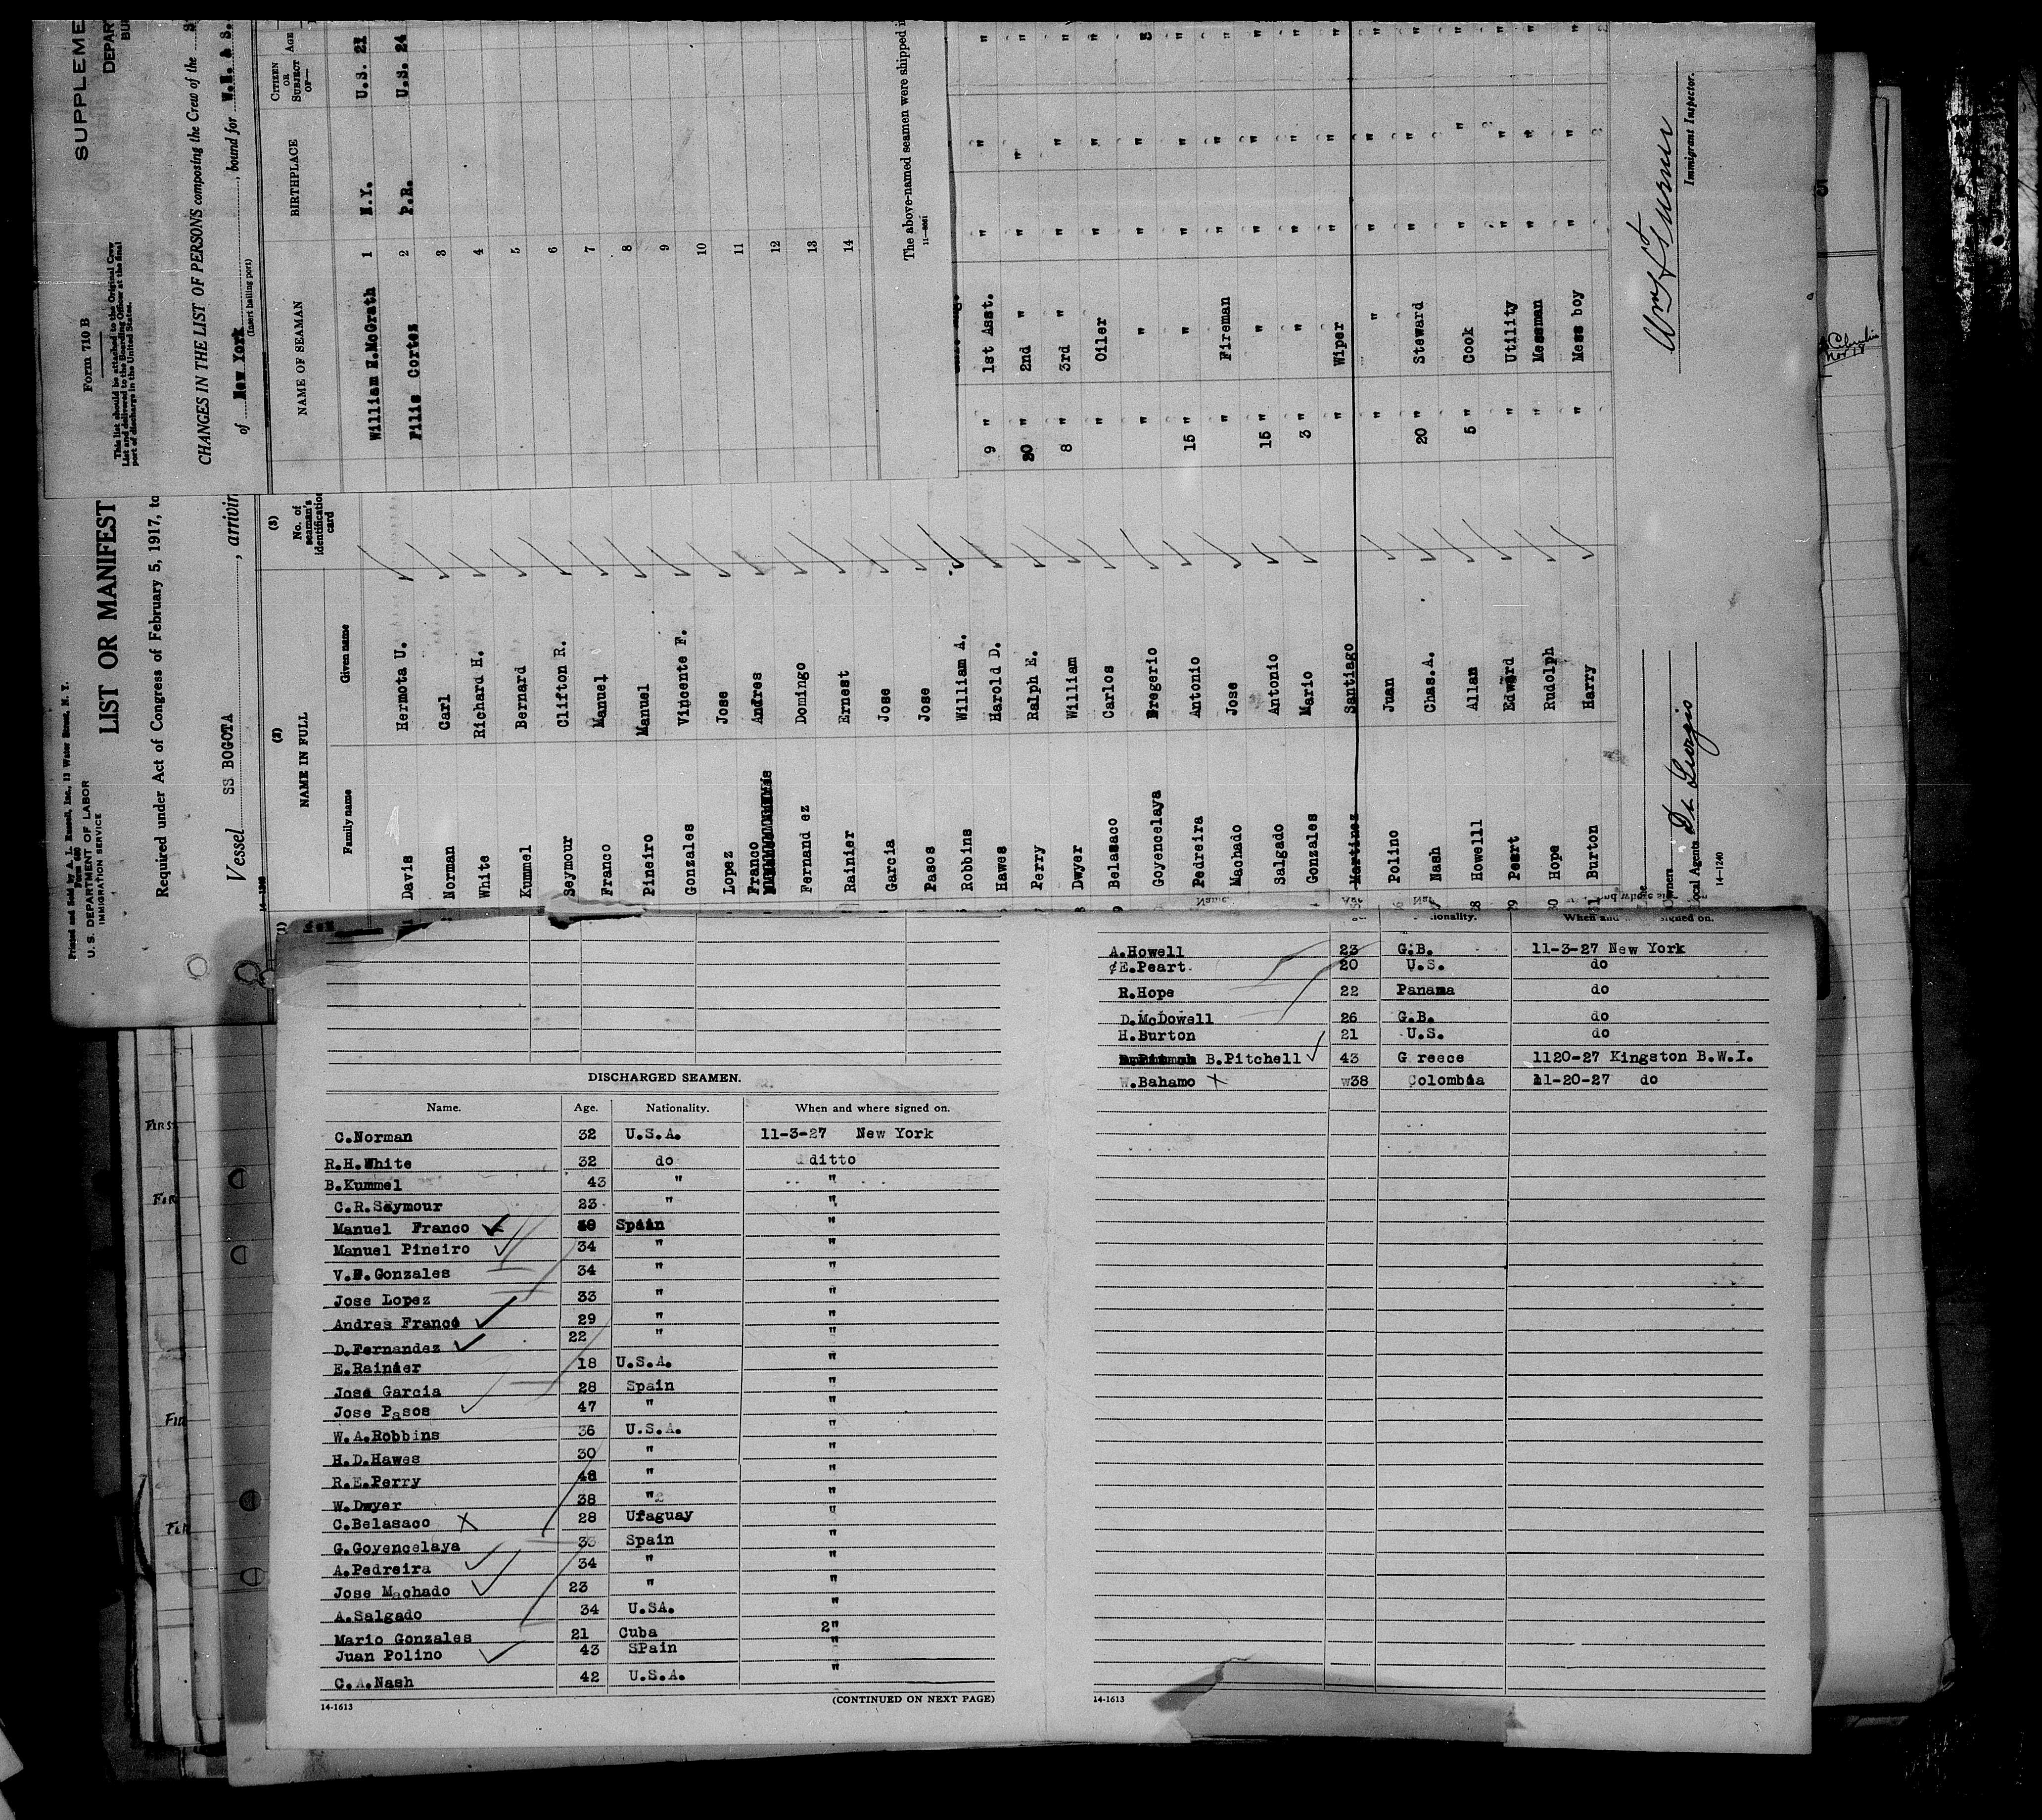 SUPPLEME
DEPAR
BU
Form 710 B
This list should be attached to the Original Crew
List and delivered to the Boarding Officer at the final
port of discharge in the United States.
CHANGES IN THE LIST OF PERSONS composing the Crew of the
of New York, bound for W.I. & S.
(Insert hailing port)
NAME OF SEAMAN BIRTHPLACE CITIZEN OR SUBJECT OF— AGE
William H.McGrath 1 N.Y. U.S. 21
Filis Cortez 2 P.R. U.S. 24
3
4
5
6
7
8
9
10
11
12
13
14
The above-named seamen were shipped i
9 " 1st Asst. " " "
20 " 2nd " " " "
8 " 3rd " " " "
" Oiler " " "
" " " "
15 " " " " "
" Fireman " " "
15 " " " " "
3 " " " " "
" Wiper " " "
" " " " "
20 " Steward " " "
5 " Cook " " "
" Utility " " "
" Messman " " "
" Mess boy " " "
Immigrant Inspector.
Printed and Sold by A. L. Russell, Inc., 13 Water Street, N. Y.
Form 680
U. S. DEPARTMENT OF LABOR
IMMIGRATION SERVICE
LIST OR MANIFEST
Required under Act of Congress of February 5, 1917, to
Vessel SS BOGOTA, arrivin
(1) (2) (3)
NAME IN FULL No. of seaman's identification card
Family name Given name
Davis Hermota U.
Norman Carl
White Richard H.
Kummel Bernard
Seymour Clifton R.
Franco Manuel
Pineiro Manuel
Gonzales Vincente F.
Lopez Jose
Franco Andres
Fernand ez Domingo
Rainier Ernest
Garcia Jose
Pasos Jose
Robbins William A.
Hawes Harold D.
Perry Ralph E.
Dwyer William
Belasaco Carlos
Goyencelaya Gregerio
Pedreira Antonio
Machado Jose
Salgado Antonio
Gonzales Mario
Martinez Santiago
Polino Juan
Nash Chas.A.
28 Howell Allan
29 Peart Edward
30 Hope Rudolph
31 Burton Harry
owners
Local Agents Di Giorgio
14—1240
DISCHARGED SEAMEN.
Name. Age. Nationality. When and where signed on.
C.Norman 32 U.S.A. 11-3-27 New York
R.H.White 32 do ditto
B.Kummel 43 " "
C.R.Seymour 23 " "
Manuel Franco Spain "
Manuel Pineiro 34 " "
V.F.Gonzales 34 " "
Jose Lopez 33 " "
Andres Franco 29 " "
D.Fernandez 22 " "
E.Rainier 18 U.S.A. "
Jose Garcia 28 Spain "
Jose Pasos 47 " "
W.A.Robbins 36 U.S.A. "
H.D.Hawes 30 " "
R.E.Perry 48 " "
W.Dwyer 38 " "
C.Belasaco X 28 Uraguay "
G.Goyencelaya 33 Spain "
A.Pedreira 34 " "
Jose Machado 23 " "
A.Salgado 34 U.SA. "
Mario Gonzales 21 Cuba 2"
Juan Polino 43 SPain "
C.A.Nash 42 U.S.A. "
14-1613 (CONTINUED ON NEXT PAGE)
ionality. When and signed on.
A.Howell 23 G.B. 11-3-27 New York
E.Peart 20 U.S. do
R.Hope 22 Panama do
D.McDowell 26 G.B. do
H.Burton 21 U.S. do
B.Pitchell 43 G reece 1120-27 Kingston B.W.I.
W.Bahamo X w38 Colombia 11-20-27 do
14-1613
FIRS
FIR
FIR
FIR